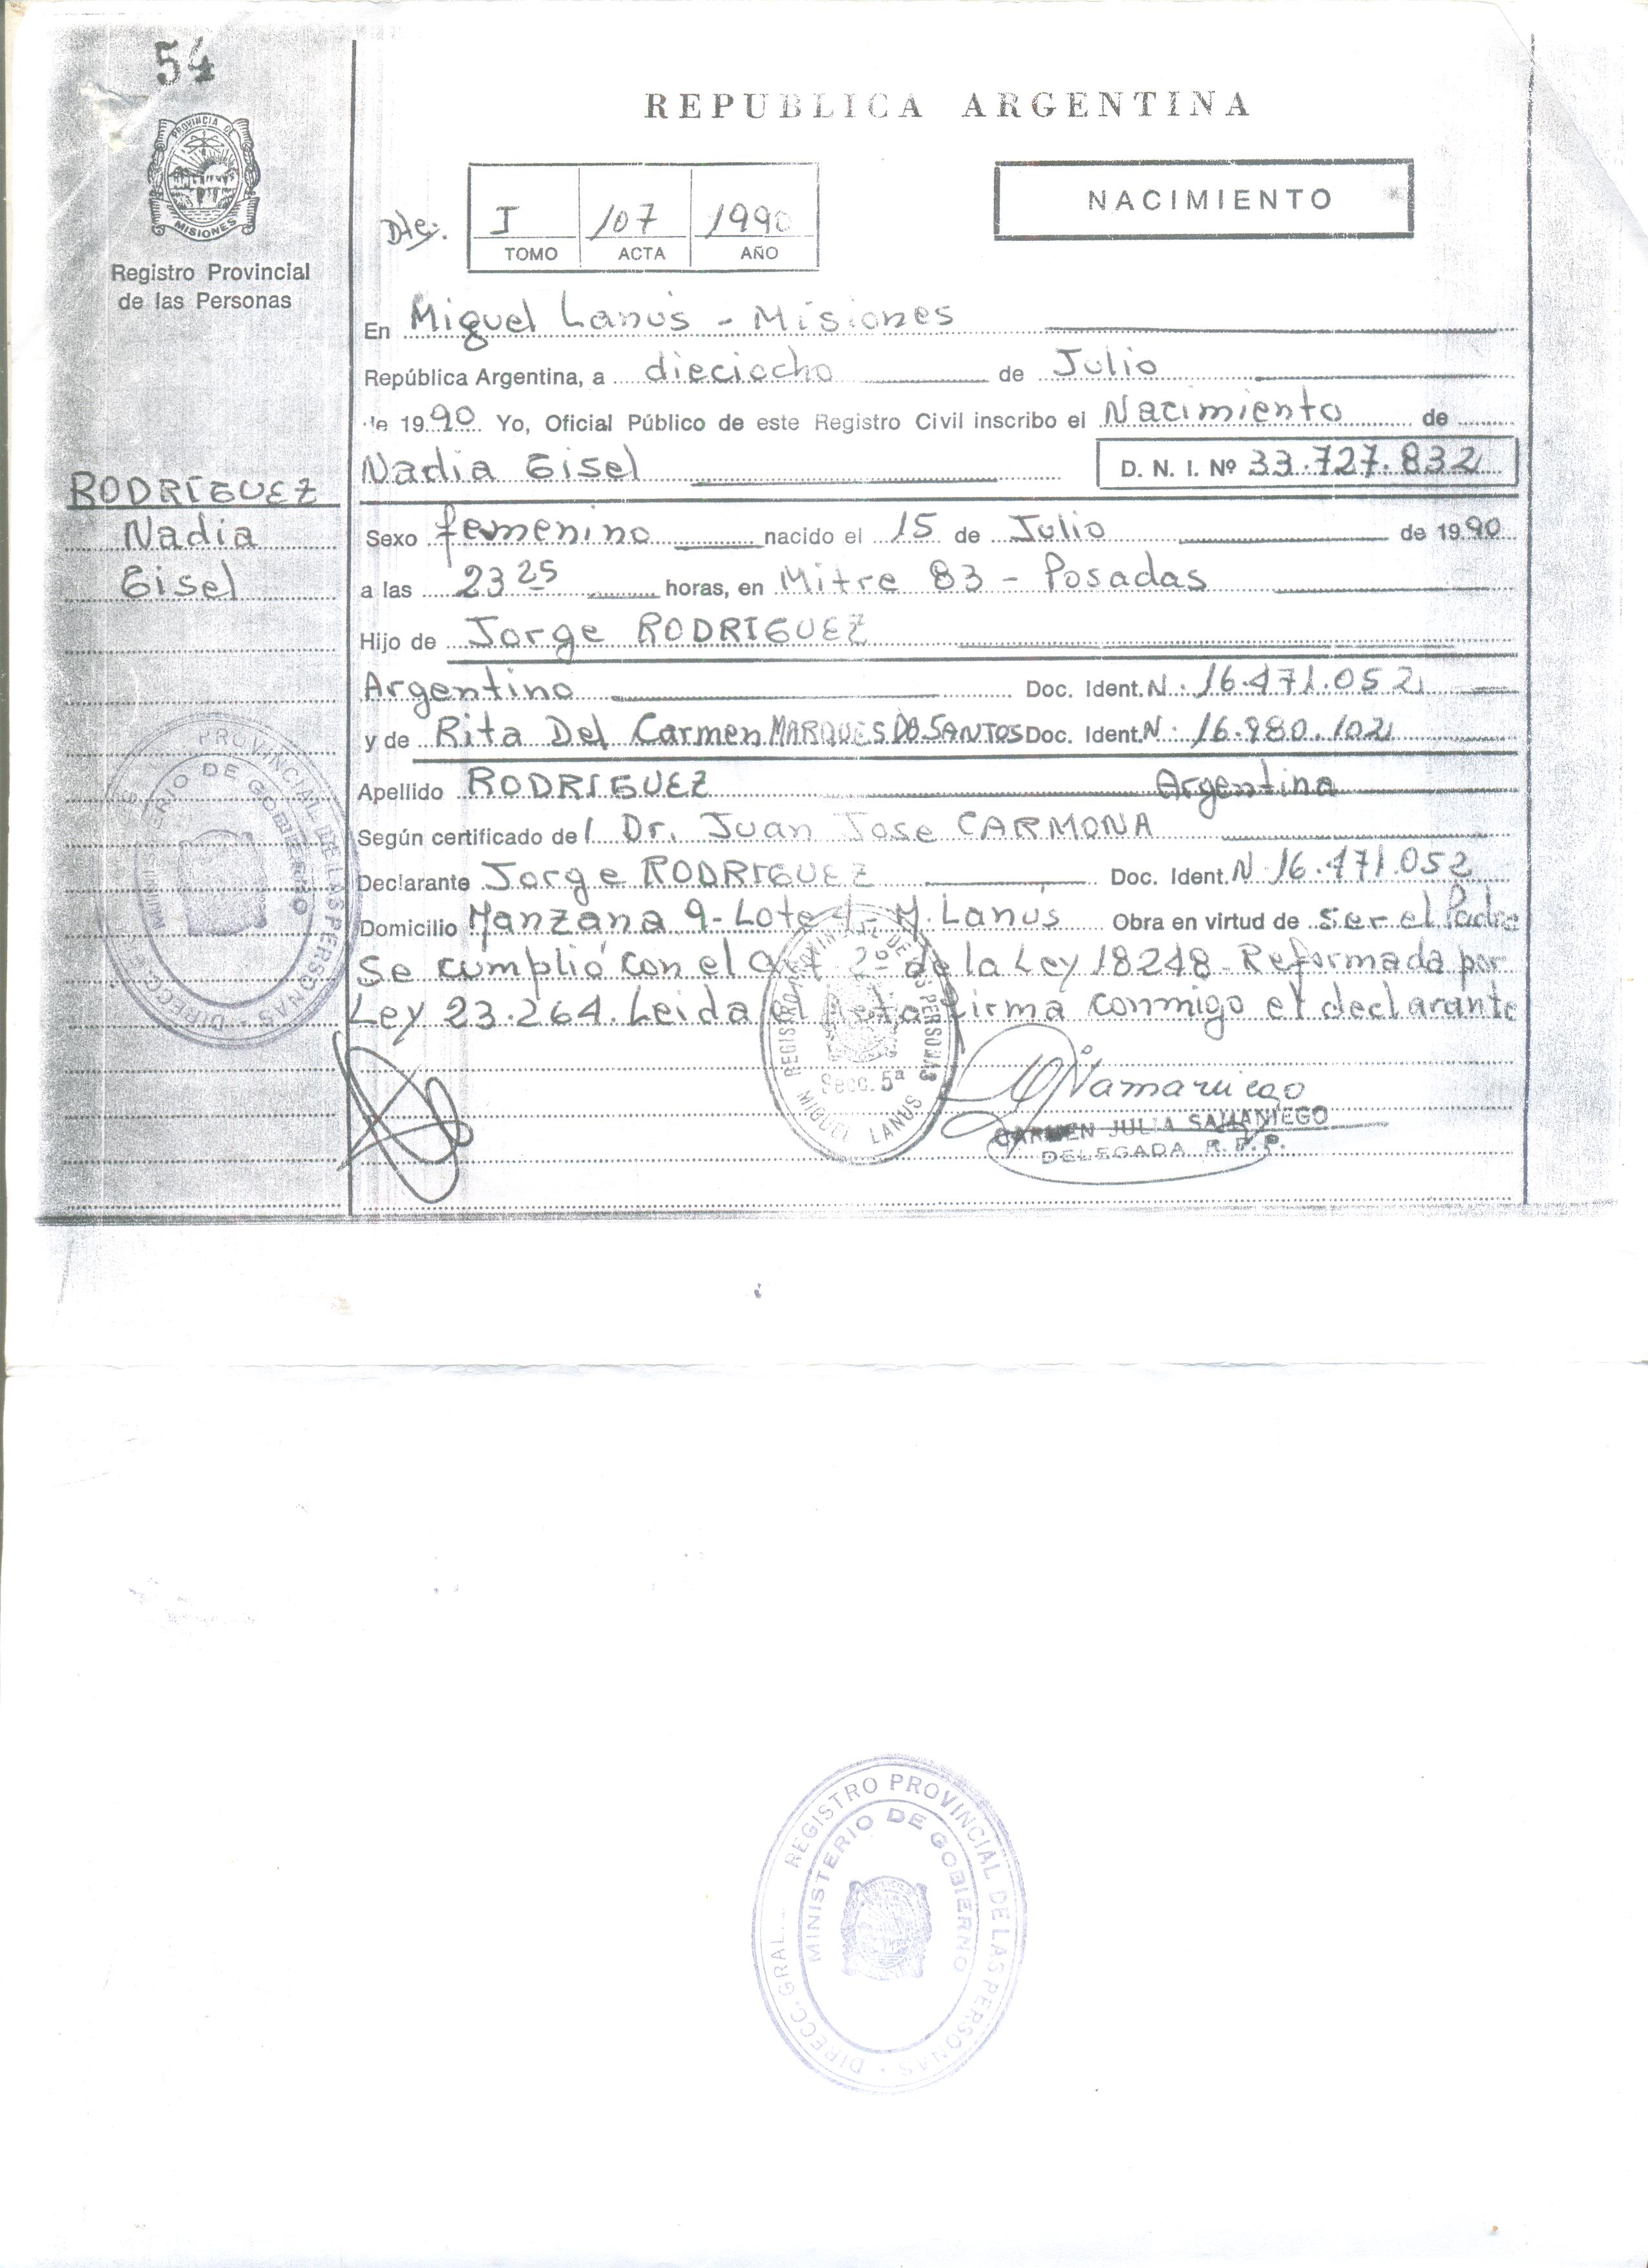 54
REPUBLICA ARGENTINA
PROVINCIA DE
MISIONES
Registro Provincial
de las Personas
Dte.
I 107 1990
TOMO ACTA AÑO
NACIMIENTO
En Miguel Lanús - Misiones
República Argentina, a dieciocho de Julio
de 1990 Yo, Oficial Público de este Registro Civil inscribo el Nacimiento de
Nadia Gisel D. N. I. Nº 33.727.832
RODRIGUEZ
Nadia
Gisel
Sexo femenino nacido el 15 de Julio de 1990
a las 23 25 horas, en Mitre 83 - Posadas
Hijo de Jorge RODRIGUEZ
Argentino Doc. Ident. N. 16.471.052
y de Rita Del Carmen MARQUES DOS SANTOS Doc. Ident. N. 16.980.102
Apellido RODRIGUEZ Argentina
Según certificado del Dr. Juan Jose CARMONA
Declarante Jorge RODRIGUEZ Doc. Ident. N. 16.471.052
Domicilio Manzana 9 - Lote 4 - M. Lanús Obra en virtud de ser el Padre
Se cumplió con el art. 2º de la Ley 18248 - Reformada por
Ley 23.264. Leida el acta firma conmigo el declarante
REGISTRO PROVINCIAL DE LAS PERSONAS
Secc. 5ª
MIGUEL LANUS
CARMEN JULIA SAMANIEGO
DELEGADA R. P. P.
DIRECC. GRAL. REGISTRO PROVINCIAL DE LAS PERSONAS
MINISTERIO DE GOBIERNO
DIRECC. GRAL. REGISTRO PROVINCIAL DE LAS PERSONAS
MINISTERIO DE GOBIERNO